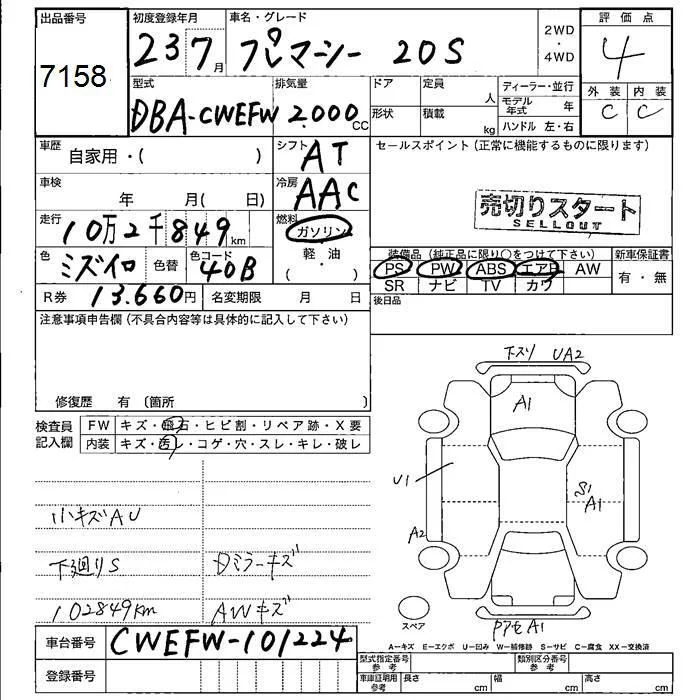 出品番号
7158
初度登録年月
23 7月
車名・グレード
プレマシー 20S
2WD
・
4WD
評価点
4
型式
DBA-CWEFW
排気量
2.000cc
ドア
定員
人
形状
積載
kg
ディーラー・並行
モデル年式 年
ハンドル 左・右
外装 内装
C C
車歴
自家用・( )
シフト
AT
車検
年 月( 日)
冷房
AAC
走行
10万2千849km
燃料
ガソリン
軽・油
( ・ )
色
ミズイロ
色替
色コード
40B
R券
13.660円
名変期限 月 日
セールスポイント(正常に機能するものに限ります)
売切りスタート
SELLOUT
装備品(純正品に限り○をつけて下さい)
新車保証書
PS PW ABS エアB AW
SR ナビ TV カワ
有・無
後日品
注意事項申告欄(不具合内容等は具体的に記入して下さい)
修復歴 有 〔箇所 〕
検査員記入欄
FW キズ・飛石・ヒビ割・リペア跡・X要
内装 キズ・汚レ・コゲ・穴・スレ・キレ・破レ
小キズAU
下廻りS
Dミラーキズ
102849km
AWキズ
下スリ UA2
A1
U1
S1
A1
A2
スペア
A1
A=キズ E=エクボ U=凹み W=補修跡 S=サビ C=腐食 XX=交換済
車台番号
CWEFW-101224
登録番号
型式指定番号
参考
類別区分番号
参考
車庫証明用
参考
長さ cm
幅 cm
高さ cm